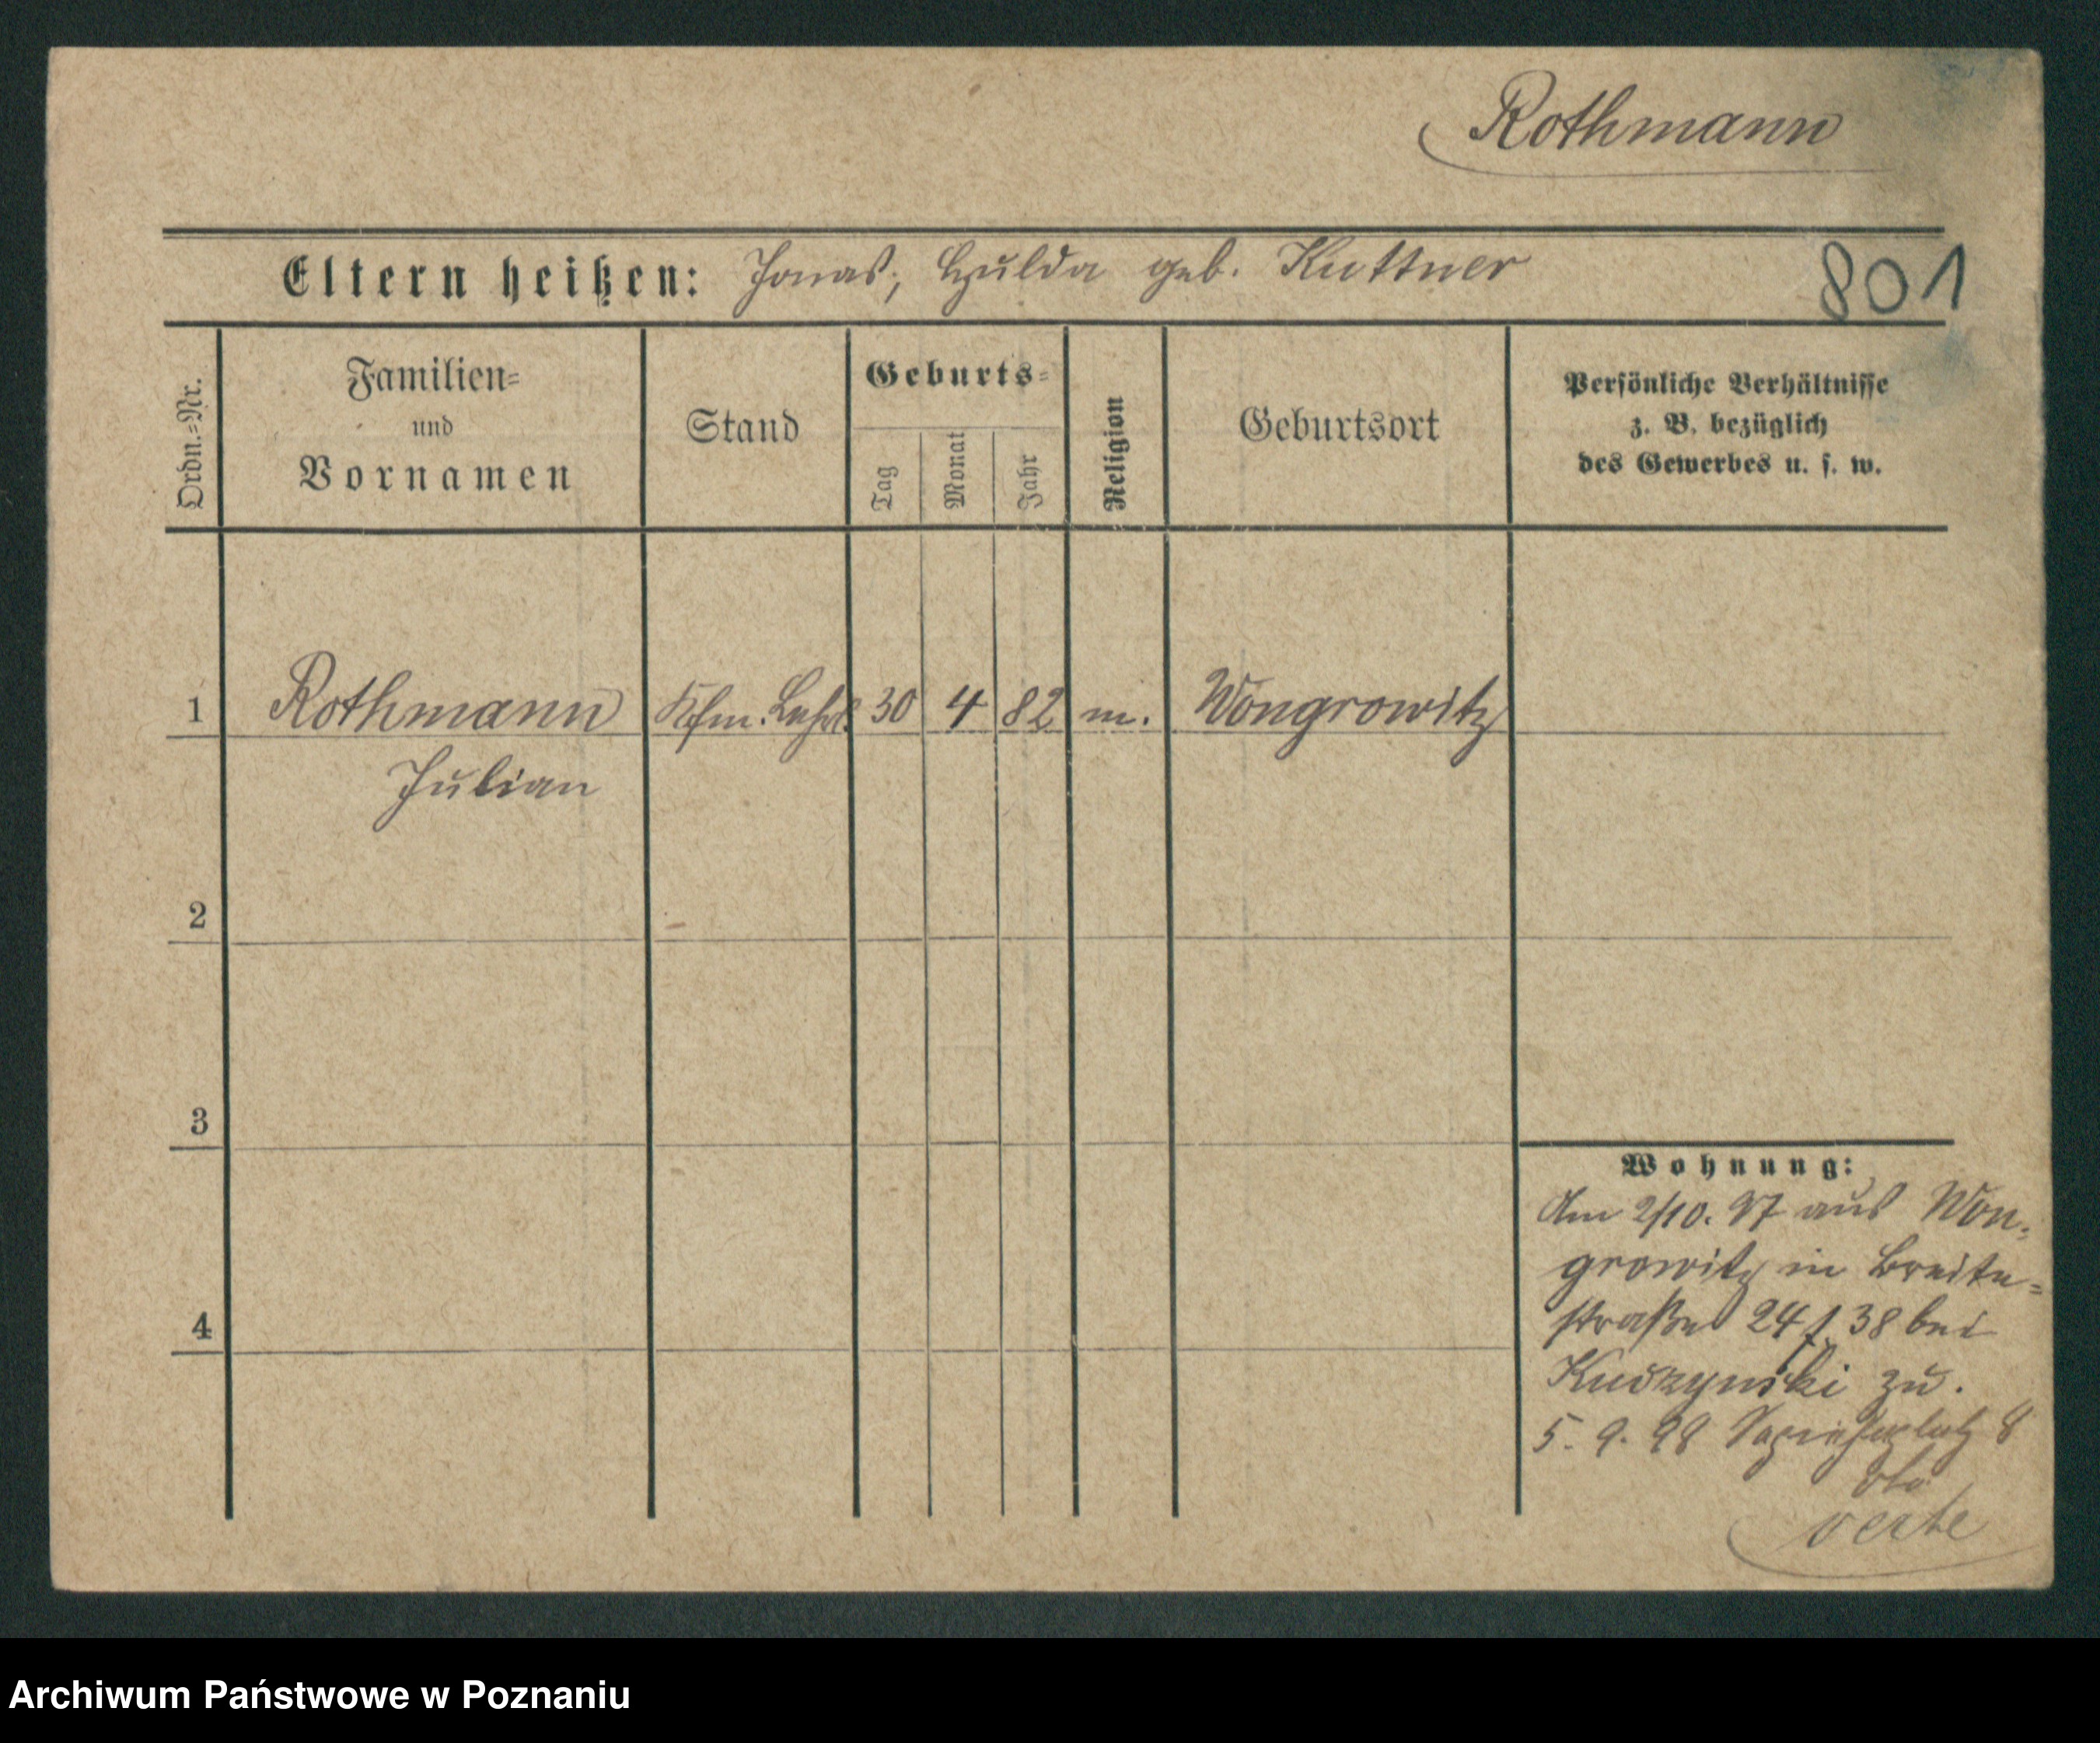 Rothmann
Eltern heißen: Jonas, Hulda geb. Kuttner
801
Ordn.=Nr.
Familien=
und
Vornamen
Stand
Geburts=
Tag
Monat
Jahr
Religion
Geburtsort
Persönliche Verhältnisse
z. B. bezüglich
des Gewerbes u. s. w.
1 Rothmann Kfm. Lehrl. 30 4 82 m. Wongrowitz
Julian
2
3
4
Wohnung:
Am 2/10. 97 aus Won-
growitz in Breite-
straße 24 / 38 bei
zu.
5. 9. 98 Sapiehaplatz 8
verte
Archiwum Państwowe w Poznaniu